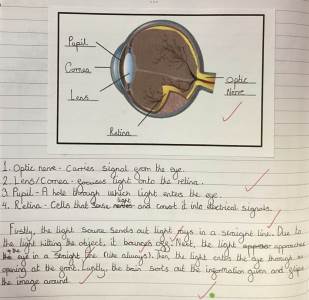 Pupil
Cornea
Lens
Retina
Optic
Nerve
1. Optic nerve - Carries signal from the eye.
2. Lens/Cornea - focuses light onto the retina.
3. Pupil - A hole through which light enters the eye.
4. Retina - Cells that sense light and convert it into electrical signals.
Firstly, the light source sends out light rays in a straight line. Due to
the light hitting the object, it bounces off. Next, the light approaches
the eye in a straight line (like always). Then, the light enters the eye through an
opening at the front. Lastly, the brain sorts out the information given and flips
the image around.